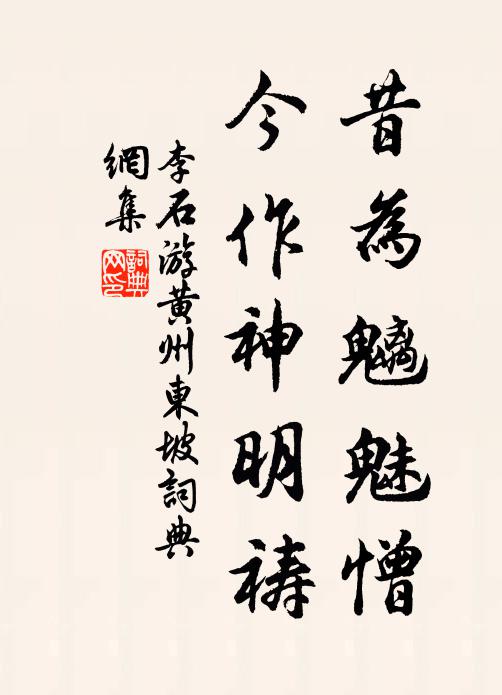 昔為魑魅憎
今作神明禱
李石游黃州東坡詞典
網集
詞典網印